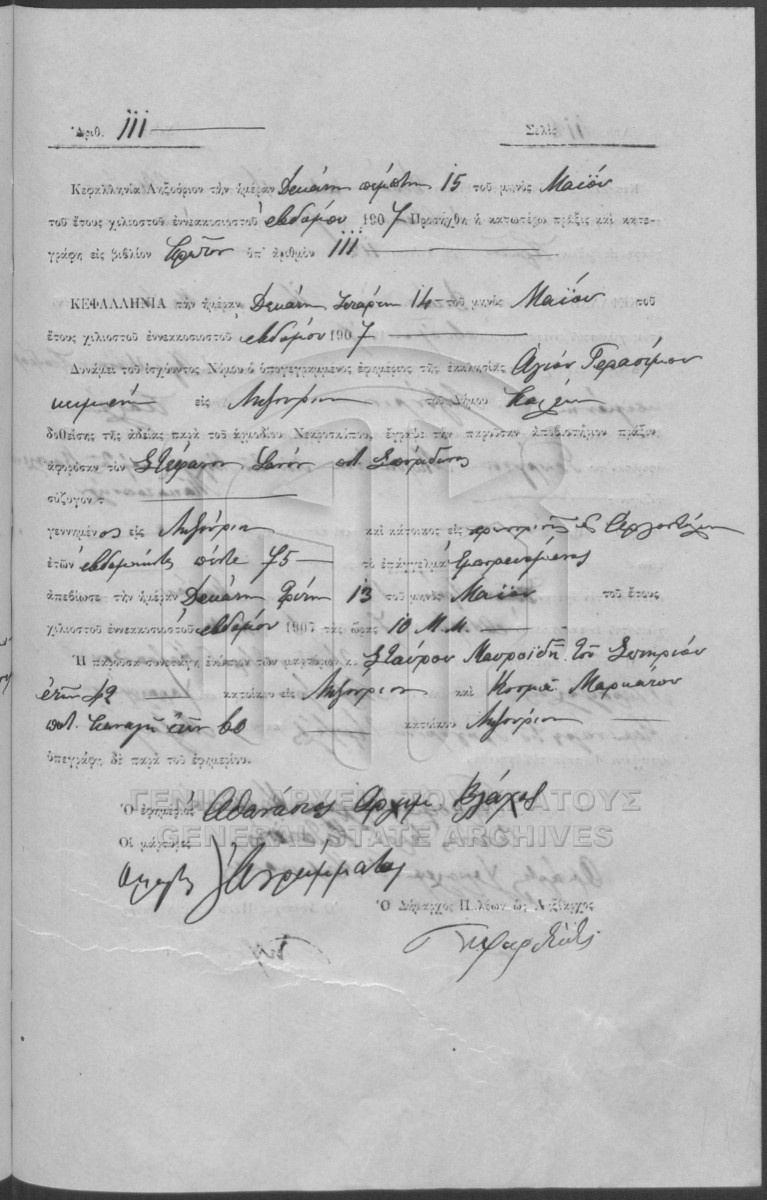 Ἀριθ. 111
Σελὶς
Κεφαλληνία Ληξούριον τὴν ἡμέραν Δεκάτη πέμπτη 15 τοῦ μηνὸς Μαΐου
τοῦ ἔτους χιλιοστοῦ ἐννεακοσιοστοῦ ἑβδόμου 1907 Προσήχθη ἡ κατωτέρω πρᾶξις καὶ κατε-
γράφη εἰς βιβλίον πρῶτον ὑπ' ἀριθμὸν 111
ΚΕΦΑΛΛΗΝΙΑ τὴν ἡμέραν Δεκάτη τετάρτη 14 τοῦ μηνὸς Μαΐου τοῦ
ἔτους χιλιοστοῦ ἐννεακοσιοστοῦ ἑβδόμου 1907
Δυνάμει τοῦ ἰσχύοντος Νόμου ὁ ὑπογεγραμμένος ἐφημέριος τῆς ἐκκλησίας Ἁγίου Γερασίμου
κειμένη εἰς Ληξούριον τοῦ Δήμου Παλέων
δοθείσης τῆς ἀδείας παρὰ τοῦ ἁρμοδίου Νεκροσκόπου, ἔγραψε τὴν παροῦσαν ἀποβιωτήριον πρᾶξιν
ἀφορῶσαν τὸν Στέφανον ποτ. Σπυρίδωνος
σύζυγον τ
γεννημένος εἰς Ληξούριον καὶ κάτοικος εἰς Ἀργοστόλιον
ἐτῶν ἑβδομήκοντα πέντε 75 τὸ ἐπάγγελμα ἐμπορευόμενος
ἀπεβίωσε τὴν ἡμέραν Δεκάτη Τρίτη 13 τοῦ μηνὸς Μαΐου τοῦ ἔτους
χιλιοστοῦ ἐννεακοσιοστοῦ ἑβδόμου 1907 τὰς ὥρας 10 Μ.Μ.
Ἡ παροῦσα συνετάγη ἐνώπιον τῶν μαρτύρων κ. Σταύρου Μαυροειδῆ τοῦ Σωτηρίου
ἐτῶν 42 κατοίκου εἰς Ληξούριον καὶ Κοσμᾶ Μαρκάτου
ποτ. Παναγῆ ἐτῶν 60 κατοίκου Ληξούριον
ὑπεγράφη δὲ παρὰ τοῦ ἐφημερίου.
Ὁ ἐφημέριος Ἀθανάσιος Ἀρχιμ. Βλάχος
ΓΕΝΙΚΑ ΑΡΧΕΙΑ ΤΟΥ ΚΡΑΤΟΥΣ
GENERAL STATE ARCHIVES
Οἱ μάρτυρες
Ἀγράμματος
Ὁ Δήμαρχος Παλέων ὡς Ληξίαρχος